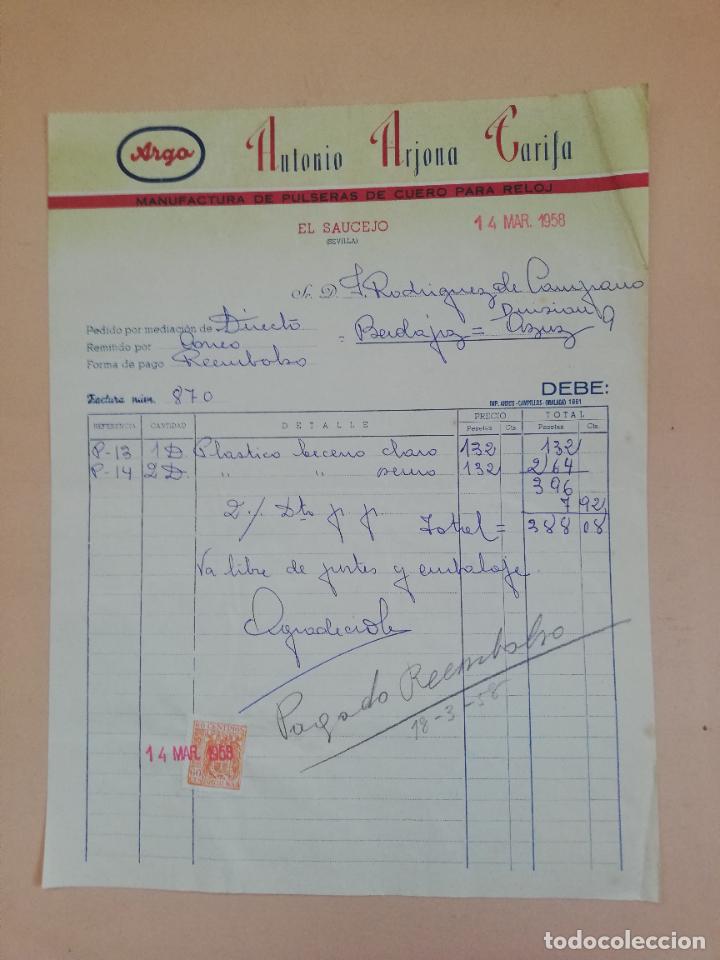 Argo
Antonio Arjona Tarifa
MANUFACTURA DE PULSERAS DE CUERO PARA RELOJ
EL SAUCEJO
(SEVILLA)
14 MAR. 1958
Sr. D. F. Rodriguez de Campano
Division
Pedido por mediación de Directo
= Badajoz = Azuz 9
Remitido por Correo
Forma de pago Reembolso
Factura núm. 870
DEBE:
REFERENCIA CANTIDAD DETALLE PRECIO TOTAL
Pesetas Cts. Pesetas Cts.
P-13 1 D Plastico becerro claro 132 132
P-14 2 D. " " 132 264
396
2 % Dto p p 7 92
Total = 388 08
Va libre de portes y embalaje.
Agradeciole
Pagado Reembolso
18-3-58
60 CENTIMOS
14 MAR. 1958
60
todocoleccion
todocoleccion.net